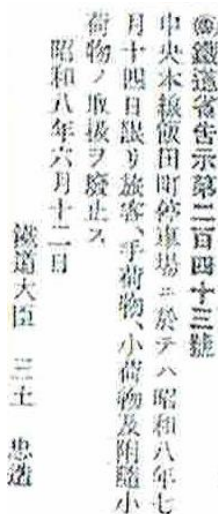 ◉鐵道省告示第二百四十三號
中央本線飯田町停車場ニ於テハ昭和八年七
月十四日限リ旅客、手荷物、小荷物及附隨小
荷物ノ取扱ヲ廢止ス
昭和八年六月十二日
鐵道大臣 三土 忠造